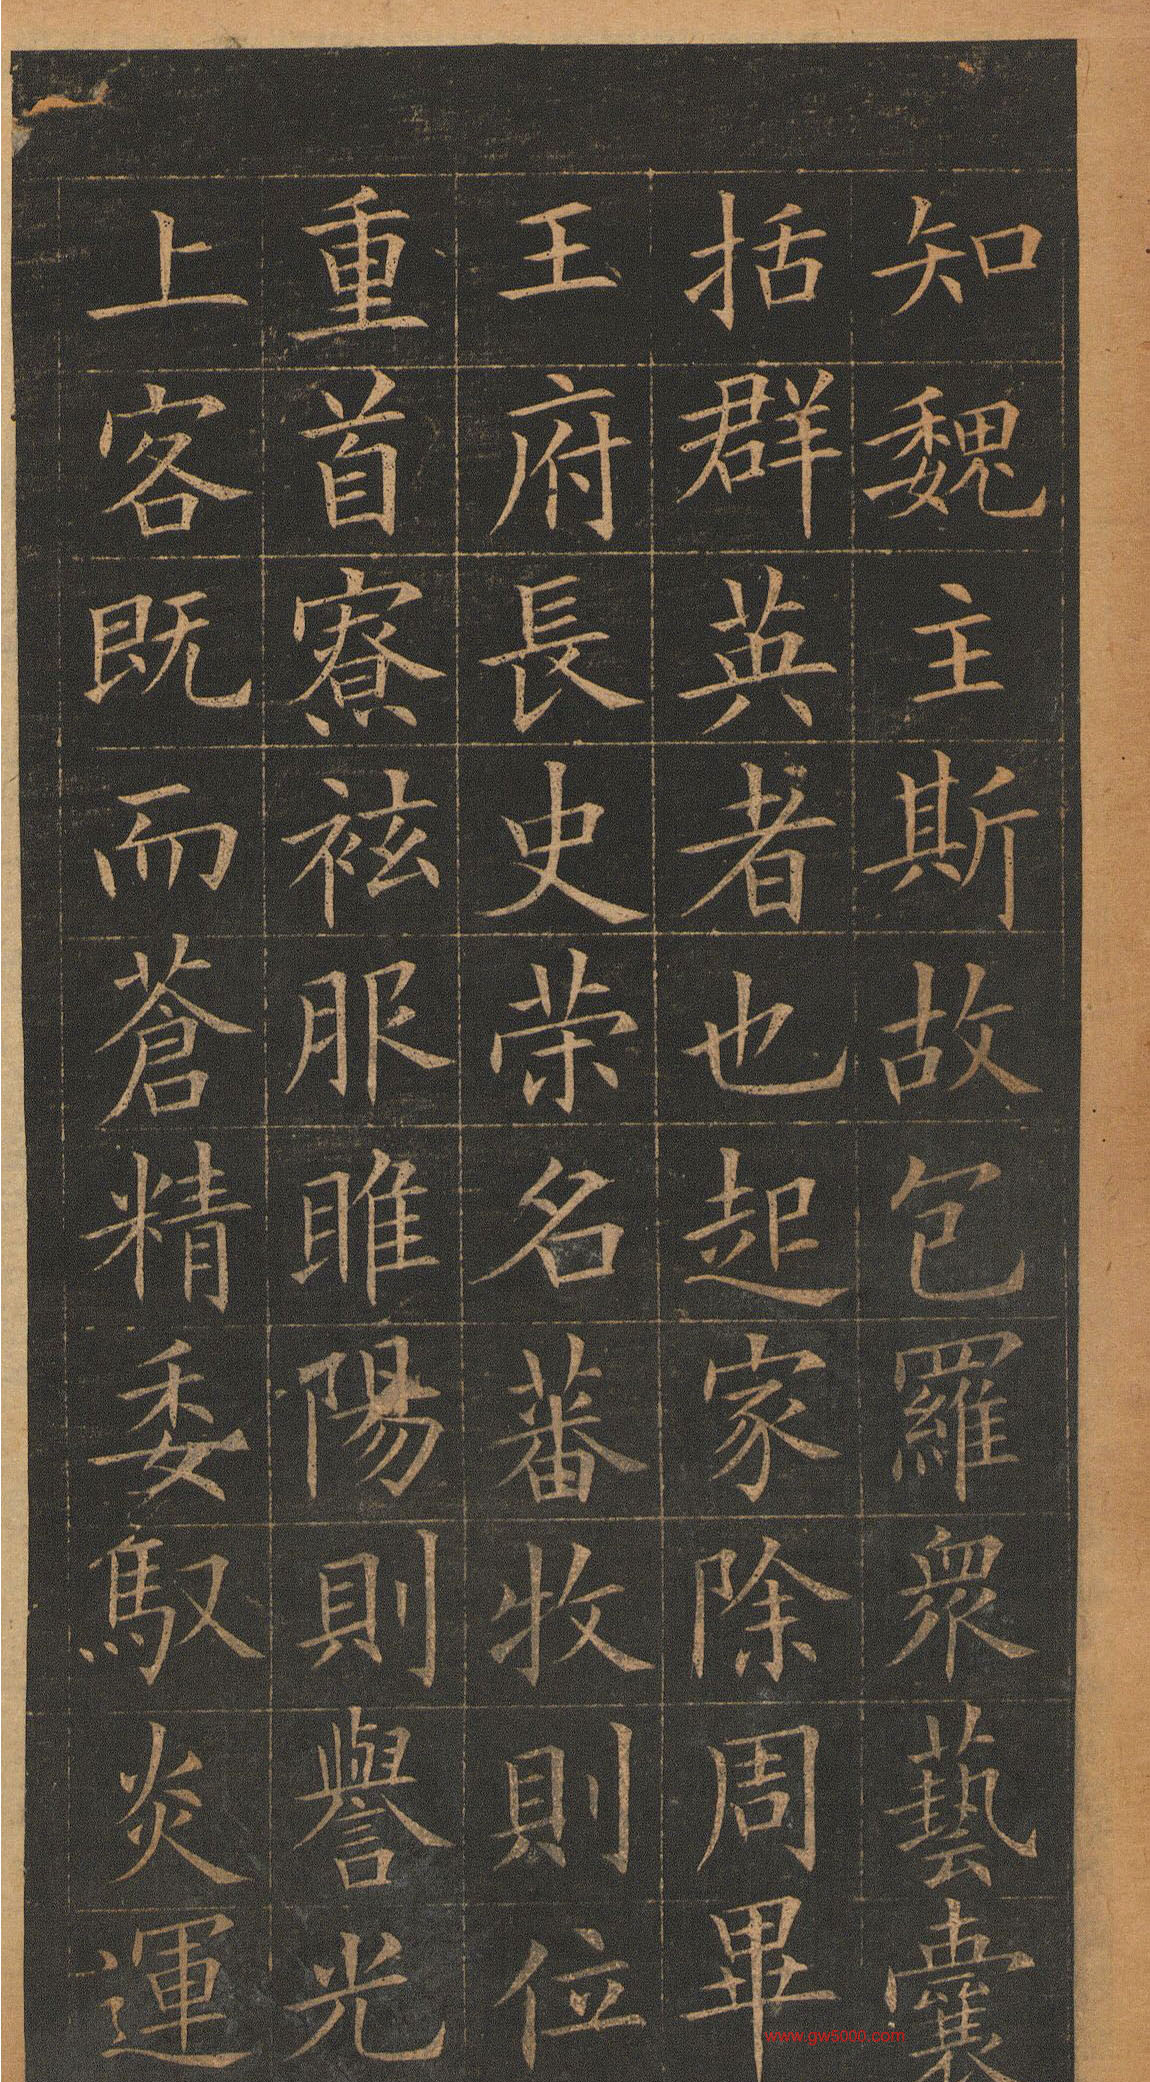 知魏主斯故包羅衆藝囊
括群英者也起家除周畢
王府長史荣名蕃牧則位
重首寮袨服睢陽則譽光
上客既而蒼精委馭炎運
www.gw5000.com